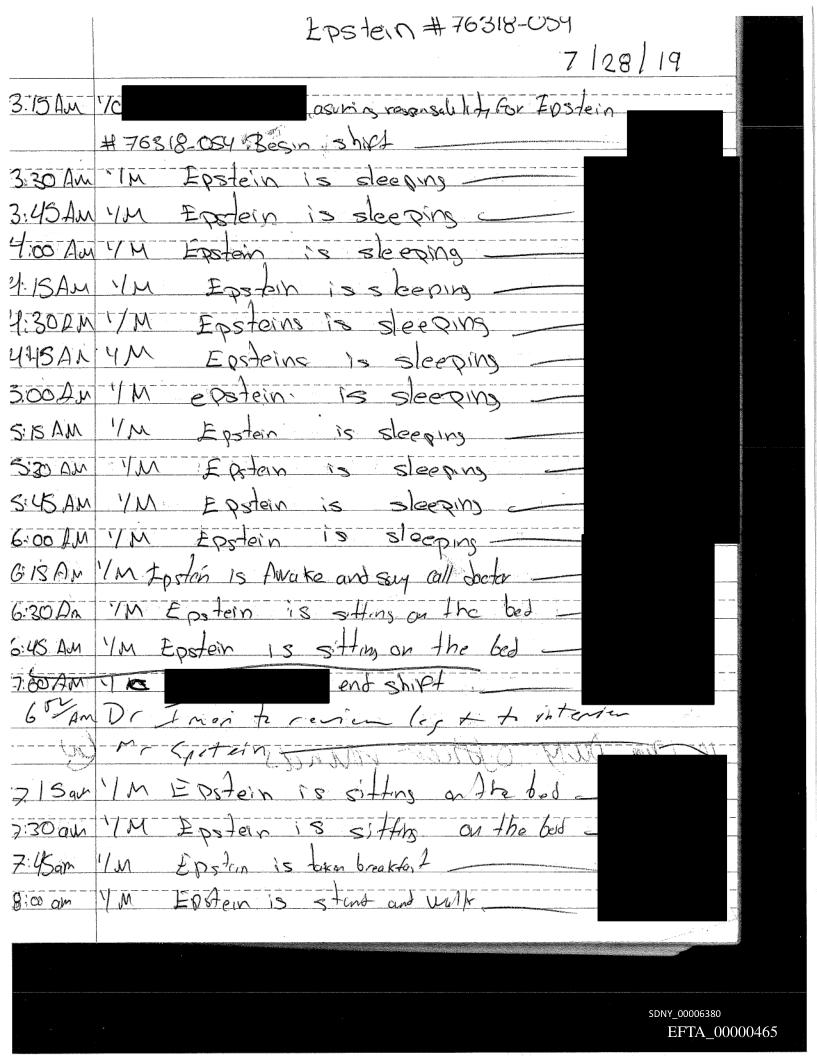 Epstein # 76318-054
7/28/19
3:15 AM I/C asuring responsability for Epstein
# 76318-054 Begin shift
3:30 AM I/M Epstein is sleeping
3:45 AM I/M Epstein is sleeping
4:00 AM I/M Epstein is sleeping
4:15 AM I/M Epstein is sleeping
4:30 AM I/M Epsteins is sleeping
4:45 AM I/M Epsteins is sleeping
5:00 AM I/M epstein is sleeping
5:15 AM I/M Epstein is sleeping
5:30 AM I/M Epstein is sleeping
5:45 AM I/M Epstein is sleeping
6:00 AM I/M Epstein is sleeping
6:15 AM I/M Epstein is Awake and say call doctor
6:30 AM I/M Epstein is sitting on the bed
6:45 AM I/M Epstein is sitting on the bed
7:00 AM I/ end shift
6 AM Dr to review log + to interview
Mr Epstein
7:15 am I/M Epstein is sitting on the bed
7:30 am I/M Epstein is sitting on the bed
7:45 am I/M Epstein is taken breakfast
8:00 am I/M Epstein is stand and walk
SDNY_00006380
EFTA_00000465